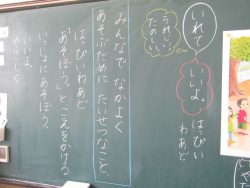 みんなで なかよく
あそぶために たいせつなこと。
いれて
いいよ。
うれしい。
たのしい。
はっぴい
わあど
はっぴいわあど
あそぼう。とこえをかける
いっしょにあそぼう。
いいよ。
やさしく